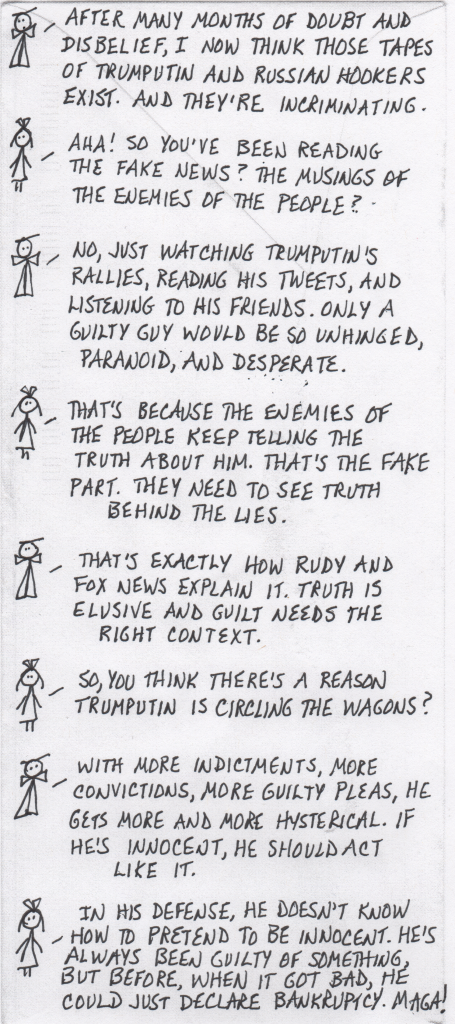 AFTER MANY MONTHS OF DOUBT AND
DISBELIEF, I NOW THINK THOSE TAPES
OF TRUMPUTIN AND RUSSIAN HOOKERS
EXIST. AND THEY'RE INCRIMINATING.
AHA! SO YOU'VE BEEN READING
THE FAKE NEWS? THE MUSINGS OF
THE ENEMIES OF THE PEOPLE?
NO, JUST WATCHING TRUMPUTIN'S
RALLIES, READING HIS TWEETS, AND
LISTENING TO HIS FRIENDS. ONLY A
GUILTY GUY WOULD BE SO UNHINGED,
PARANOID, AND DESPERATE.
THAT'S BECAUSE THE ENEMIES OF
THE PEOPLE KEEP TELLING THE
TRUTH ABOUT HIM. THAT'S THE FAKE
PART. THEY NEED TO SEE TRUTH
BEHIND THE LIES.
THAT'S EXACTLY HOW RUDY AND
FOX NEWS EXPLAIN IT. TRUTH IS
ELUSIVE AND GUILT NEEDS THE
RIGHT CONTEXT.
SO, YOU THINK THERE'S A REASON
TRUMPUTIN IS CIRCLING THE WAGONS?
WITH MORE INDICTMENTS, MORE
CONVICTIONS, MORE GUILTY PLEAS, HE
GETS MORE AND MORE HYSTERICAL. IF
HE'S INNOCENT, HE SHOULD ACT
LIKE IT.
IN HIS DEFENSE, HE DOESN'T KNOW
HOW TO PRETEND TO BE INNOCENT. HE'S
ALWAYS BEEN GUILTY OF SOMETHING,
BUT BEFORE, WHEN IT GOT BAD, HE
COULD JUST DECLARE BANKRUPTCY. MAGA!